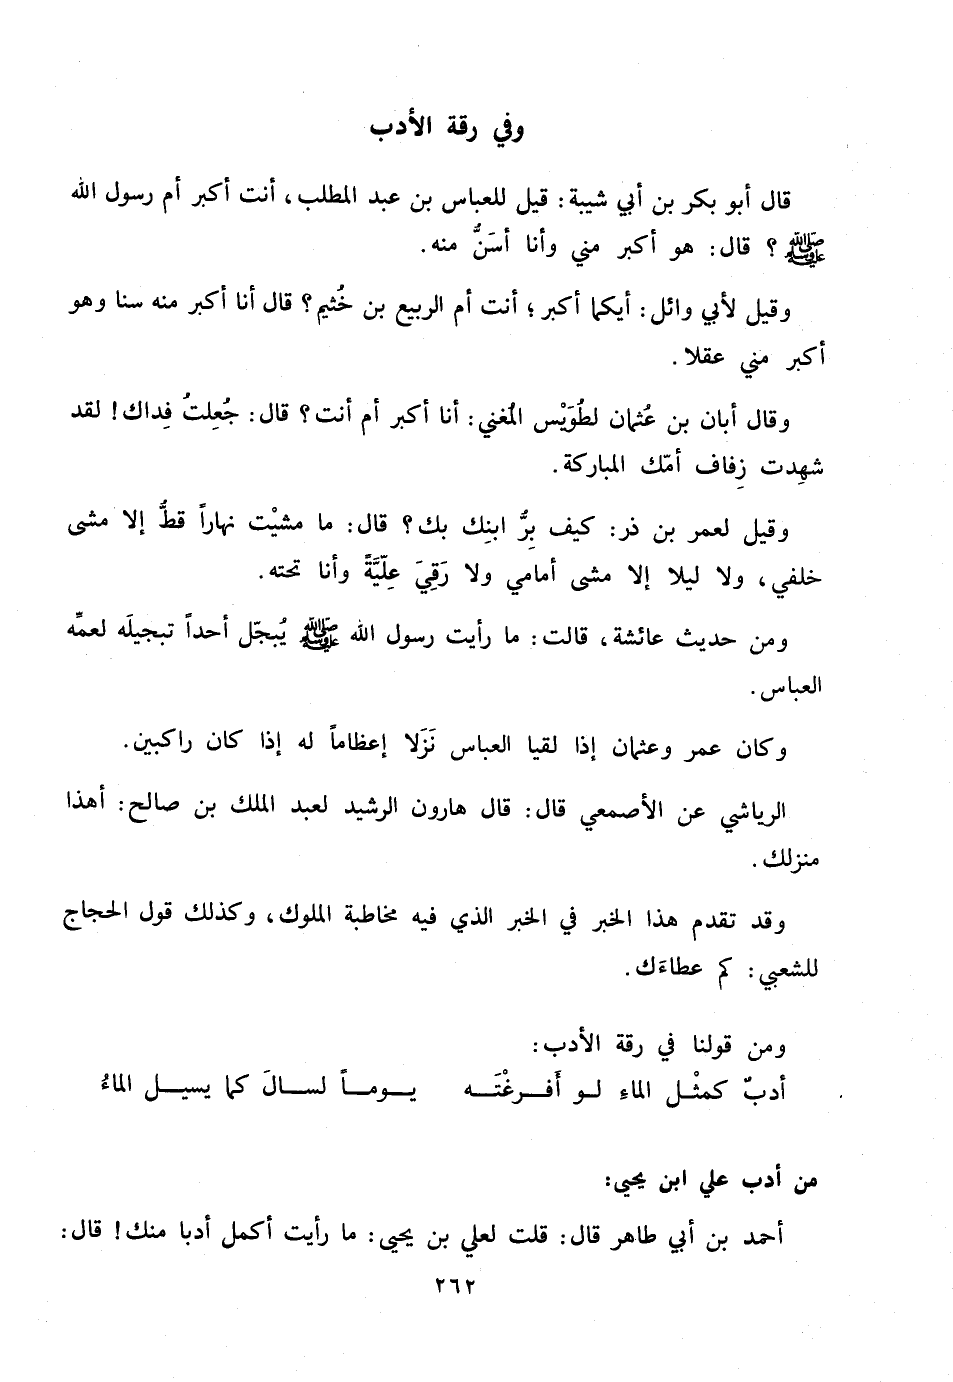 وفي رقة الأدب
قال أبو بكر بن أبي شيبة: قيل للعباس بن عبد المطلب، أنت أكبر أم رسول الله
ﷺ ؟ قال: هو أكبر مني وأنا أسَنُّ منه.
وقيل لأبي وائل: أيكما أكبر؛ أنت أم الربيع بن خُثيم؟ قال أنا أكبر منه سنا وهو
أكبر مني عقلا.
وقال أبان بن عُثمان لطُوَيْس المُغني: أنا أكبر أم أنت؟ قال: جُعِلتُ فِداك! لقد
شهِدت زِفاف أمّك المباركة.
وقيل لعمر بن ذر: كيف بِرُّ ابنِك بك؟ قال: ما مشيْت نهاراً قطُّ إلا مشى
خلفي، ولا ليلا إلا مشى أمامي ولا رَقِيَ عِلّيَّةً وأنا تحته.
ومن حديث عائشة، قالت: ما رأيت رسول الله ﷺ يُبجّل أحداً تبجيلَه لعمِّه
العباس.
وكان عمر وعثمان إذا لقيا العباس نَزَلا إعظاماً له إذا كان راكبين.
الرياشي عن الأصمعي قال: قال هارون الرشيد لعبد الملك بن صالح: أهذا
منزلك.
وقد تقدم هذا الخبر في الخبر الذي فيه مخاطبة الملوك، وكذلك قول الحجاج
للشعبي: كم عطاءَك.
ومن قولنا في رقة الأدب:
أدبٌ كمثْل الماءِ لو أَفرغْتَه يوماً لسالَ كما يسيل الماءُ
من أدب علي ابن يحيى:
أحمد بن أبي طاهر قال: قلت لعلي بن يحيى: ما رأيت أكمل أدبا منك! قال:
٢٦٢